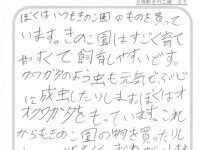 ぼくはいつもきのこ園のものを買って
います。きのこ園はすごく育て
やすくて飼育しやすいです。
クワガタのよう虫も元気どうぶじ
に成虫したりしますぼくはオオ
オクワガタをもっています。これ
からもきのこ園の物を買ったりし